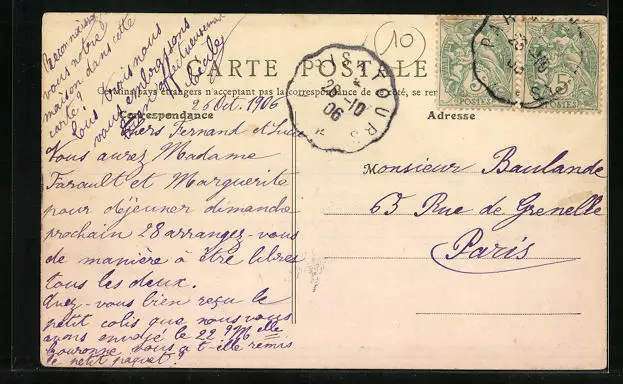 Reconnaissez
vous notre
maison dans cette
carte?
Tous trois nous
vous embrassons
bien affectueusement
Cécile
10
CARTE POSTALE
pays étrangers n'acceptant pas la correspondance
26 Oct. 1906
Correspondance
Chers Fernand et
Vous aurez Madame
Farault et Marguerite
pour déjeuner dimanche
prochain 28 arrangez-vous
de manière à être libres
tous les deux.
Avez-vous bien reçu le
petit colis que nous vous
avons envoyé le 22? Melle
vous a t-elle remis
le petit paquet?
TOURS
26-10
06
POSTES
POSTES
Adresse
Monsieur Baulande
65 Rue de Grenelle
Paris